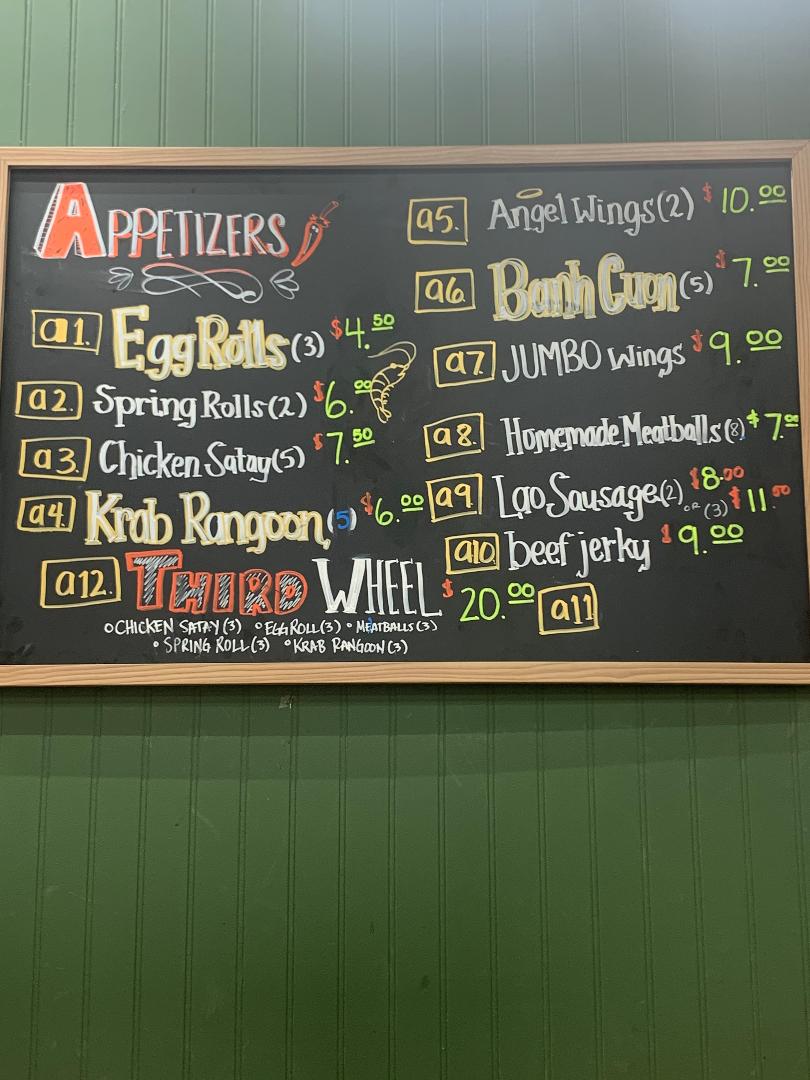 APPETIZERS
a1. Egg Rolls (3) $4.50
a2. Spring Rolls (2) $6.00
a3. Chicken Satay (5) $7.50
a4. Krab Rangoon (5) $6.00
a5. Angel Wings (2) $10.00
a6. Banh Cuon (5) $7.00
a7. JUMBO Wings $9.00
a8. Homemade Meatballs (8) $7.00
a9. Lao Sausage (2) $8.00
OR (3) $11.00
a10. beef jerky $9.00
a12. THIRD WHEEL $20.00
a11
◦ CHICKEN SATAY (3) ◦ EGG ROLL (3) • MEATBALLS (3)
• SPRING ROLL (3) ◦ KRAB RANGOON (3)